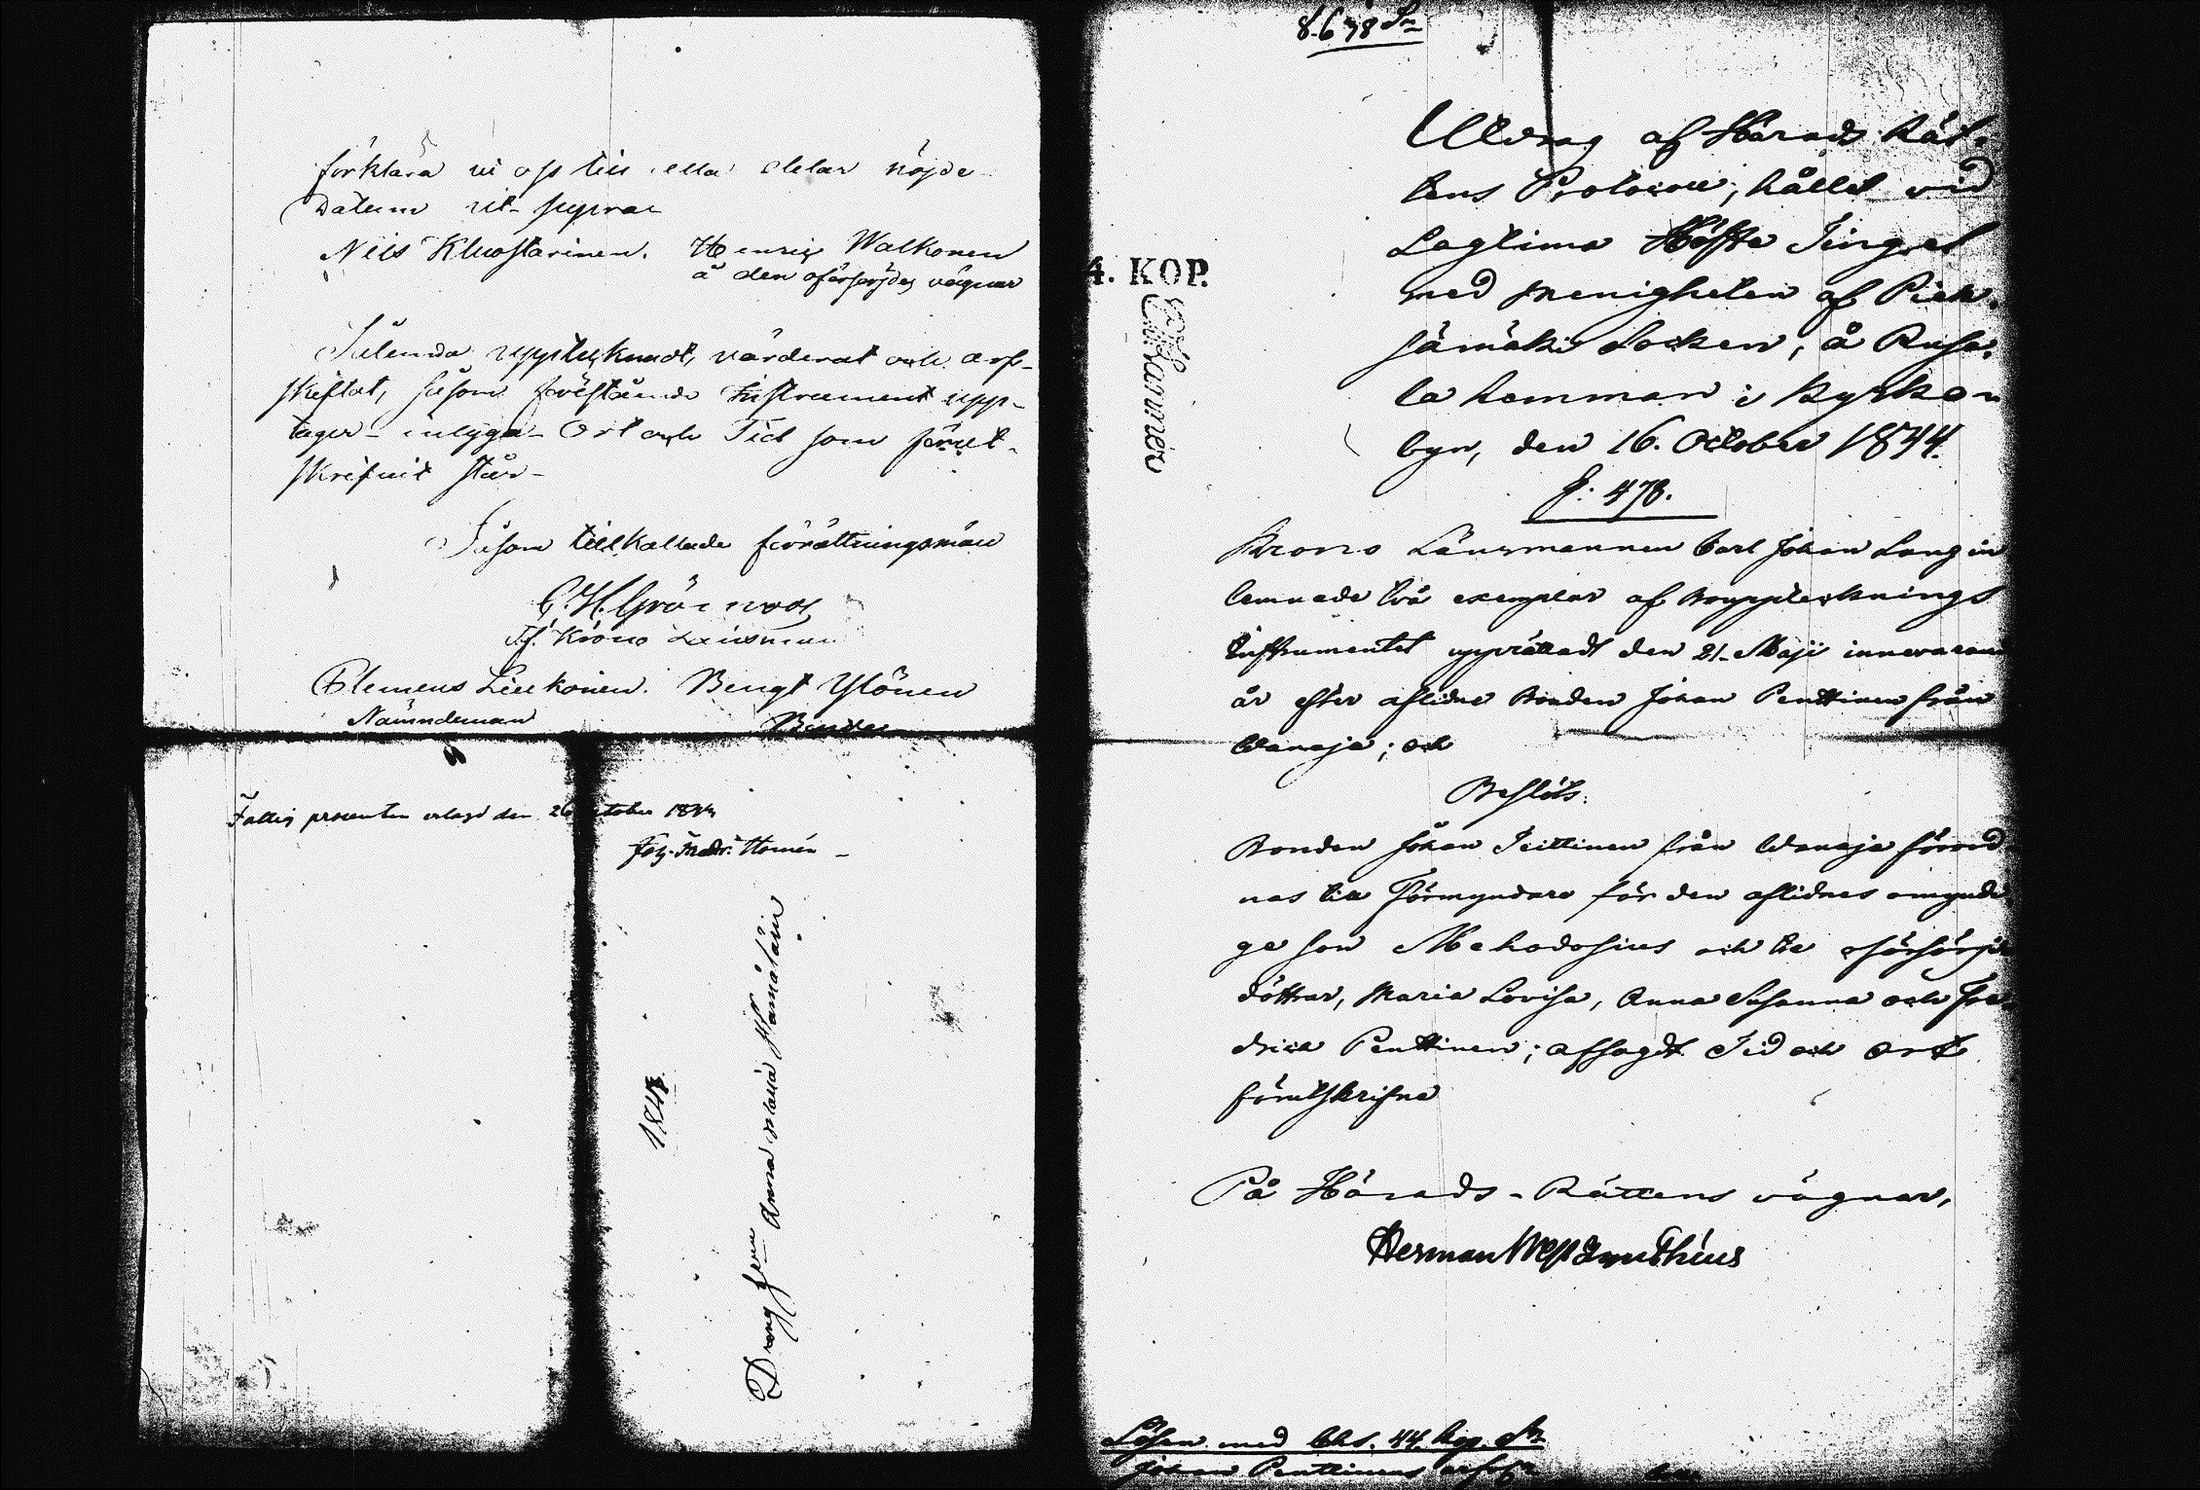 förklara vi oss till alla delar nöjde
Datum ut supra
Nils Kluostarinen. Henric Walkonen
å den oförsörjdes vägnar
Sålunda upptecknadt, värderat och arf-
skiftat, såsom förestående Instrument upp-
tager - intyga - Ort och Tid som förut-
skrifvit står -
Såsom tillkallade förrättningsmän
C. H. Grönroos
Tf. Krono Länsman
Clemens Liukoinen. Bengt Ylönen
Nämndeman Bonde
Fattig procenten erlagd den 26 October 1844
1843
Dräng Anna Maria Hämäläin
8. 678 Sn
4. KOP.
Utdrag af Härads Rät-
tens Protocoll, hållet vid
Lagtima Höste Tinget
med menigheten af Piek-
sämäki Socken, å Rusa-
la hemman i Kyrko
byn, den 16. October 1844.
§. 478.
Krono Länsmannen Carl Johan Lang in
lemnade två exemplar af Boupptecknings
Instrumentet upprättadt den 21. Maji innevarand
år efter aflidne Bonden Johan Penttinen från
Wanaja; och
Beslöts:
Bonden Johan Teittinen från Wanaja förord
nas till Förmyndare för den aflidnes omyndi
ge son Mehodosius och de oförsörjda
döttrar, Maria Lovisa, Anna Susanna och Fre-
drica Penttinen; afsagdt Tid och Ort
förutskrifne
På Härads-Rättens vägnar,
Herman
Lösen med 44. kop. Sr
Johan Penttinens